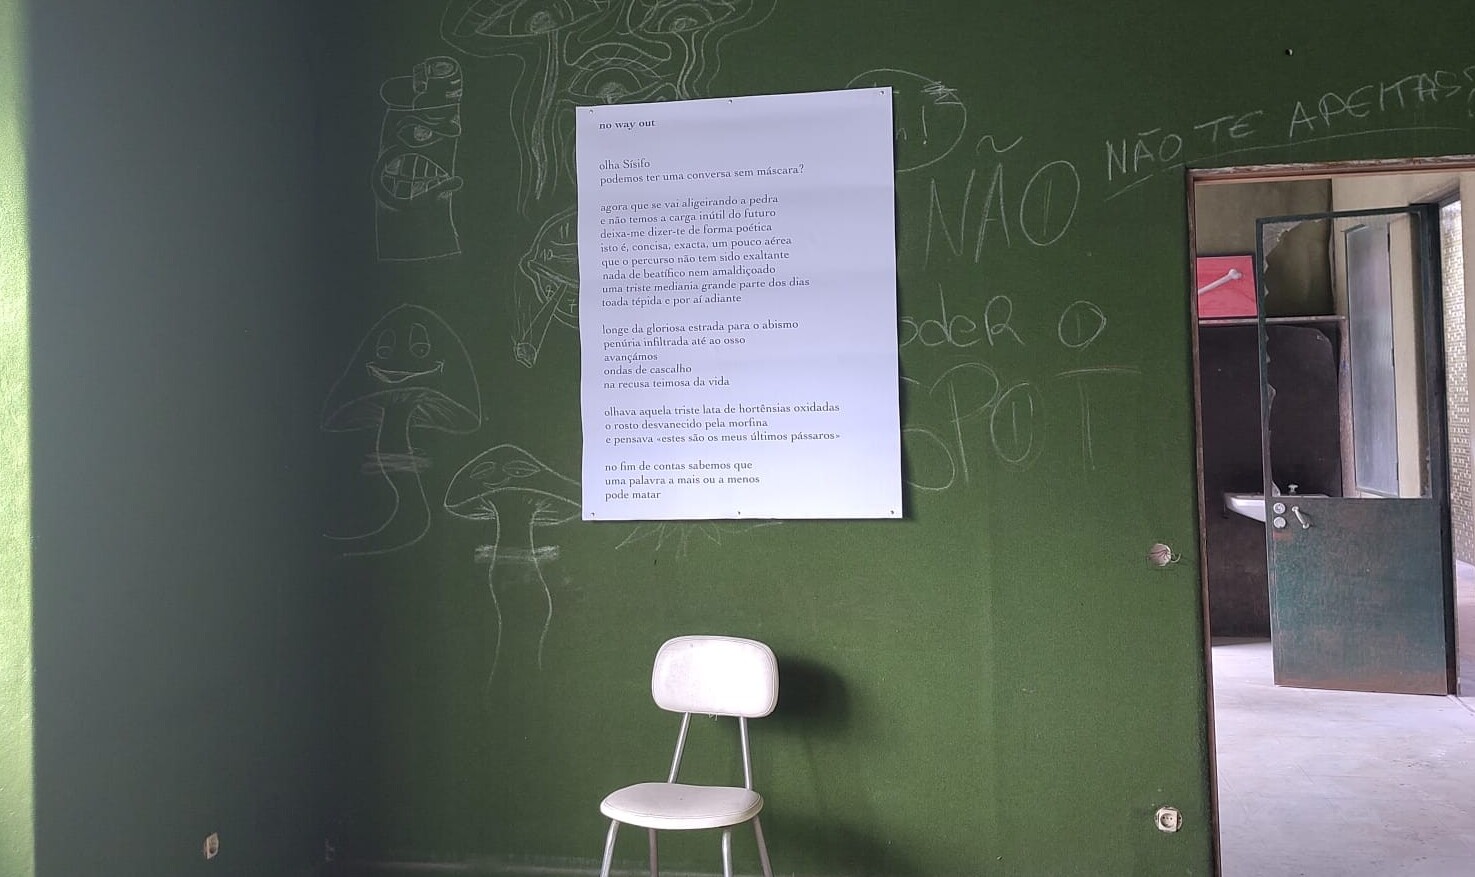 no way out
olha Sísifo
podemos ter uma conversa sem máscara?
agora que se vai aligeirando a pedra
e não temos a carga inútil do futuro
deixa-me dizer-te de forma poética
isto é, concisa, exacta, um pouco aérea
que o percurso não tem sido exaltante
nada de beatífico nem amaldiçoado
uma triste mediania grande parte dos dias
toada tépida e por aí adiante
longe da gloriosa estrada para o abismo
penúria infiltrada até ao osso
avançámos
ondas de cascalho
na recusa teimosa da vida
olhava aquela triste lata de hortênsias oxidadas
o rosto desvanecido pela morfina
e pensava «estes são os meus últimos pássaros»
no fim de contas sabemos que
uma palavra a mais ou a menos
pode matar
NÃO
O
SPOT
NÃO TE